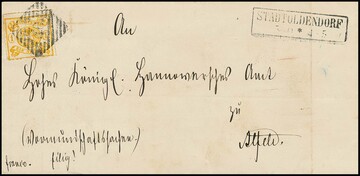 STADTOLDENDORF
An
Hohes Königl. Hannoversches Amt
zu
Alfeld.
(Vormundschaftssachen)
eilig!
franco.